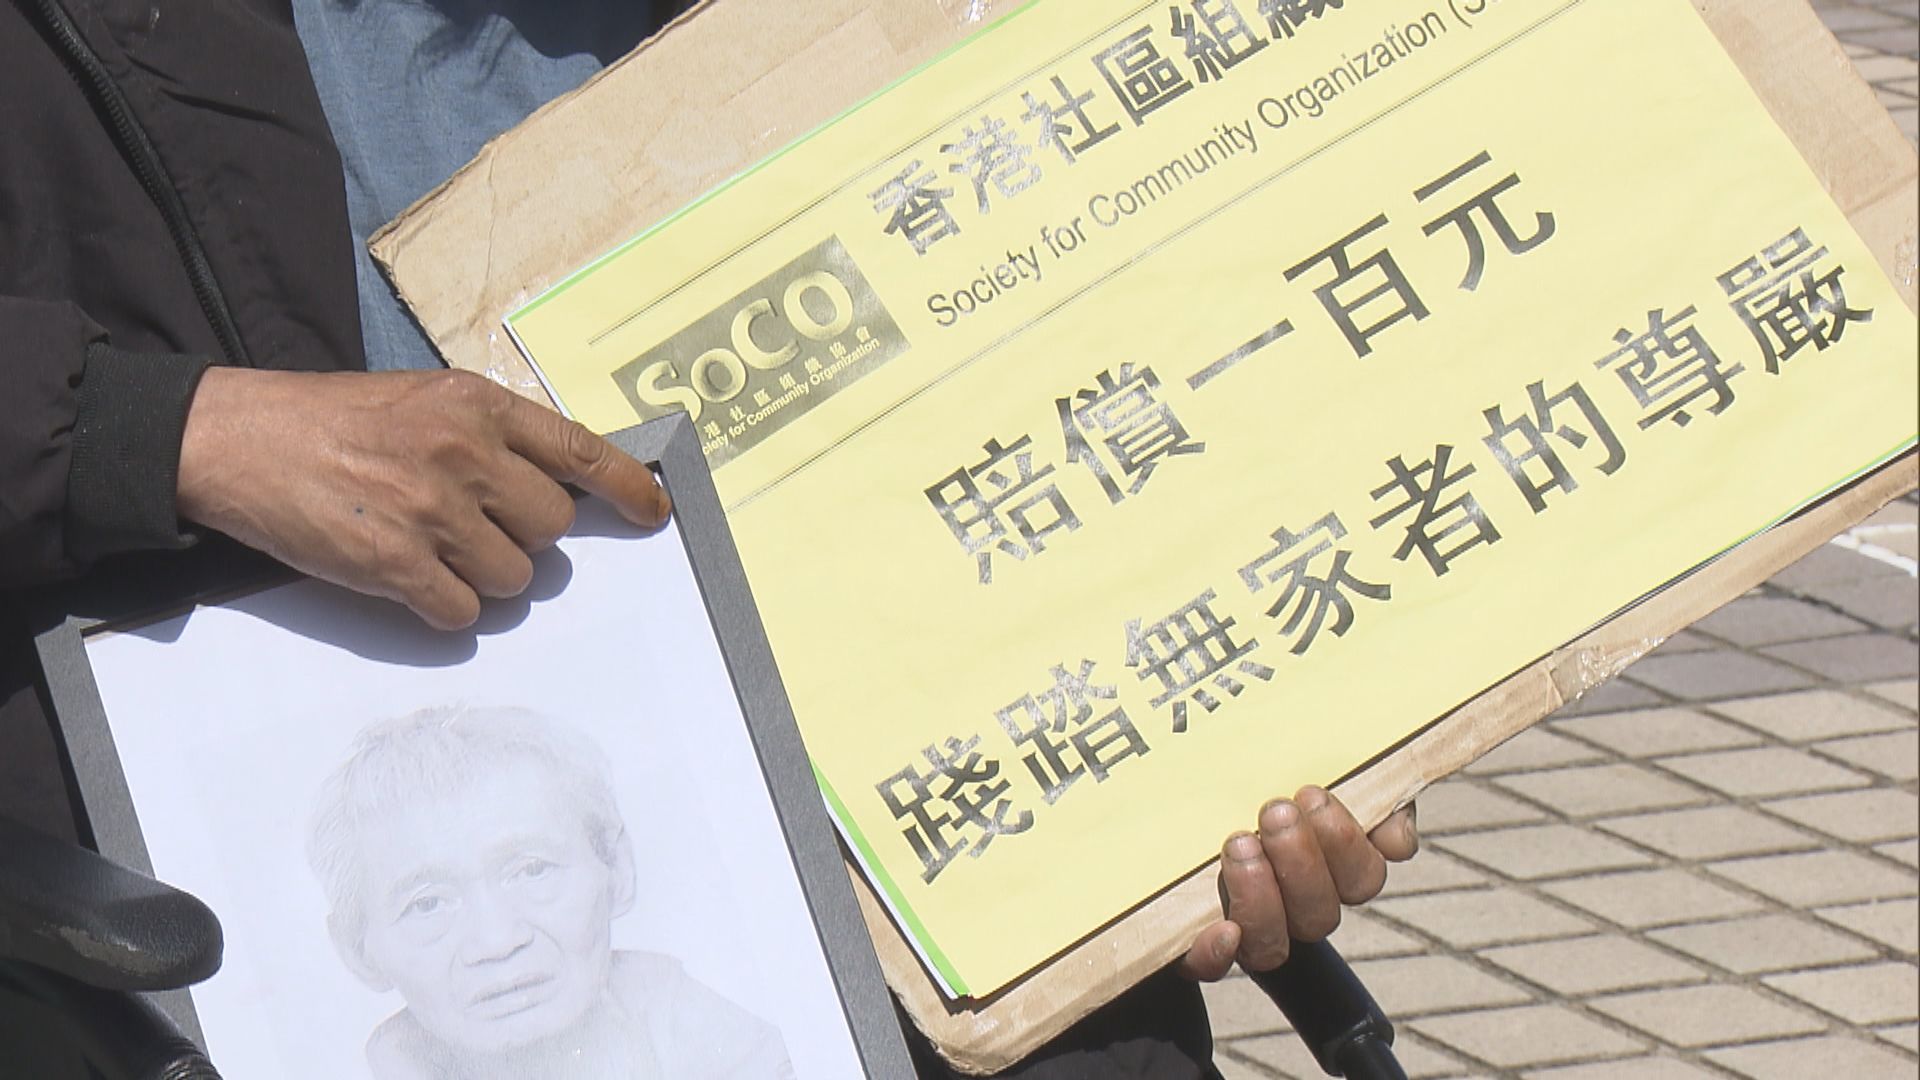 香港社區組織
Society for Community Organization
SoCO
港社區組織協會
ciety for Community Organization
賠償一百元
踐踏無家者的尊嚴